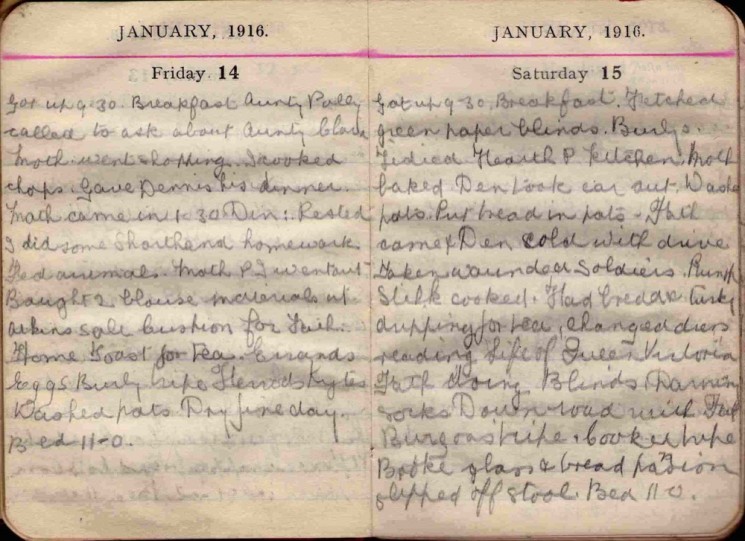 JANUARY, 1916.
Friday 14
Got up 9-30. Breakfast Aunty Polly
called to ask about Aunty
Moth. went shopping. I cooked
chops. Gave Dennis his dinner.
Moth came in 1-30 Din: Rested
I did some Shorthand homework.
Fed animals. Moth & I went out
Bought 2 blouse materials at
Atkins sale Cushion for Faith.
Home Toast for tea. Errands
Eggs Burly tripe
Washed pots Dry fine day.
Bed 11-0.
JANUARY, 1916.
Saturday 15
Got up 9-30. Breakfast. Fetched
green paper blinds. Burlys.
Tidied Hearth & kitchen. Moth
baked Den took car out. Washed
pots. Put bread in pots - Fath
came & Den cold with drive
Taken wounded Soldiers.
cooked. Had bread & turkey
dripping for tea, changed
reading Life of Queen Victoria
Fath doing Blinds. Darning
socks Down road with
tripe. Cooked tripe
Broke glass & bread
slipped off stool. Bed 11-0.